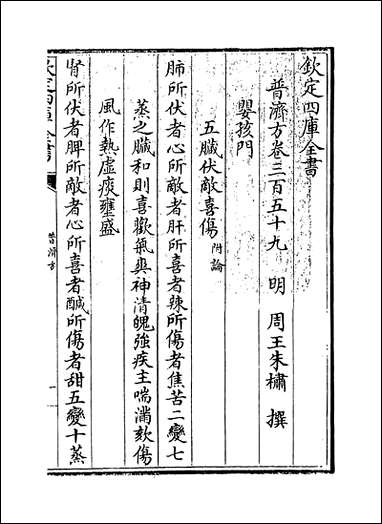 欽定四庫全書
普濟方卷三百五十九　明　周王朱橚　撰
嬰孩門
五臟伏敵喜傷附論
肺所伏者心所敵者肝所喜者辣所傷者焦苦二變七
蒸之臟和則喜歡氣爽神清魄強疾主喘滿欬傷
風作熱虛痰壅盛
腎所伏者脾所敵者心所喜者醎所傷者甜五變十蒸
普濟方
一